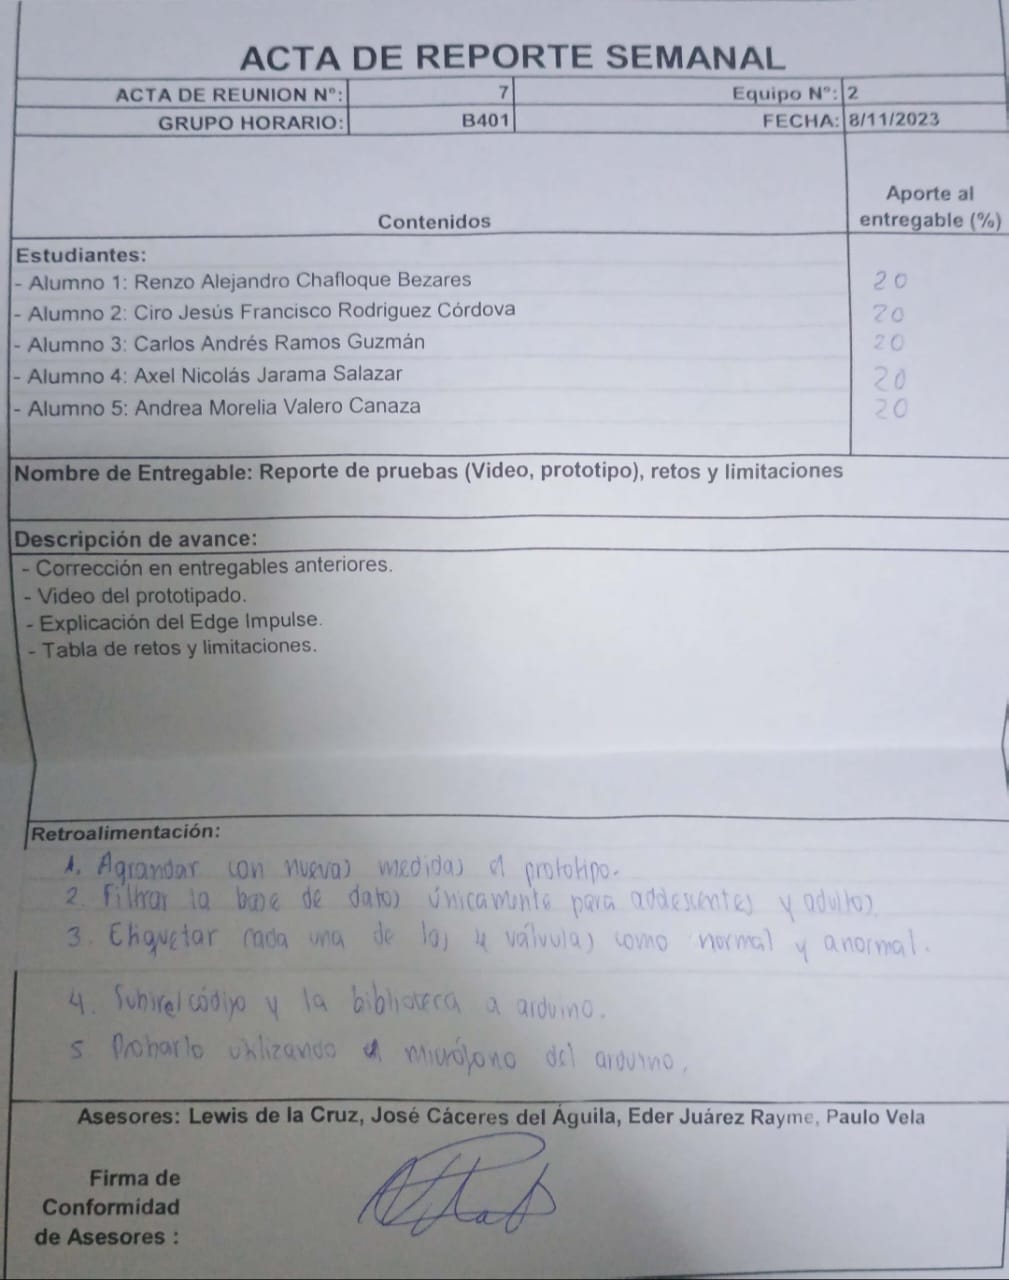 ACTA DE REPORTE SEMANAL
ACTA DE REUNION N°: 7 Equipo N°: 2
GRUPO HORARIO: B401 FECHA: 8/11/2023
Contenidos
Aporte al
entregable (%)
Estudiantes:
- Alumno 1: Renzo Alejandro Chafloque Bezares 20
- Alumno 2: Ciro Jesús Francisco Rodriguez Córdova 20
- Alumno 3: Carlos Andrés Ramos Guzmán 20
- Alumno 4: Axel Nicolás Jarama Salazar 20
- Alumno 5: Andrea Morelia Valero Canaza 20
Nombre de Entregable: Reporte de pruebas (Video, prototipo), retos y limitaciones
Descripción de avance:
- Corrección en entregables anteriores.
- Video del prototipado.
- Explicación del Edge Impulse.
- Tabla de retos y limitaciones.
Retroalimentación:
1. Agrandar con nuevas medidas el prototipo.
2. Filtrar la base de datos únicamente para adolescentes y adultos.
3. Etiquetar cada una de las 4 válvulas como normal y anormal.
4. Subir el código y la biblioteca a arduino.
5. Probarlo utilizando el micrófono del arduino.
Asesores: Lewis de la Cruz, José Cáceres del Águila, Eder Juárez Rayme, Paulo Vela
Firma de
Conformidad
de Asesores :